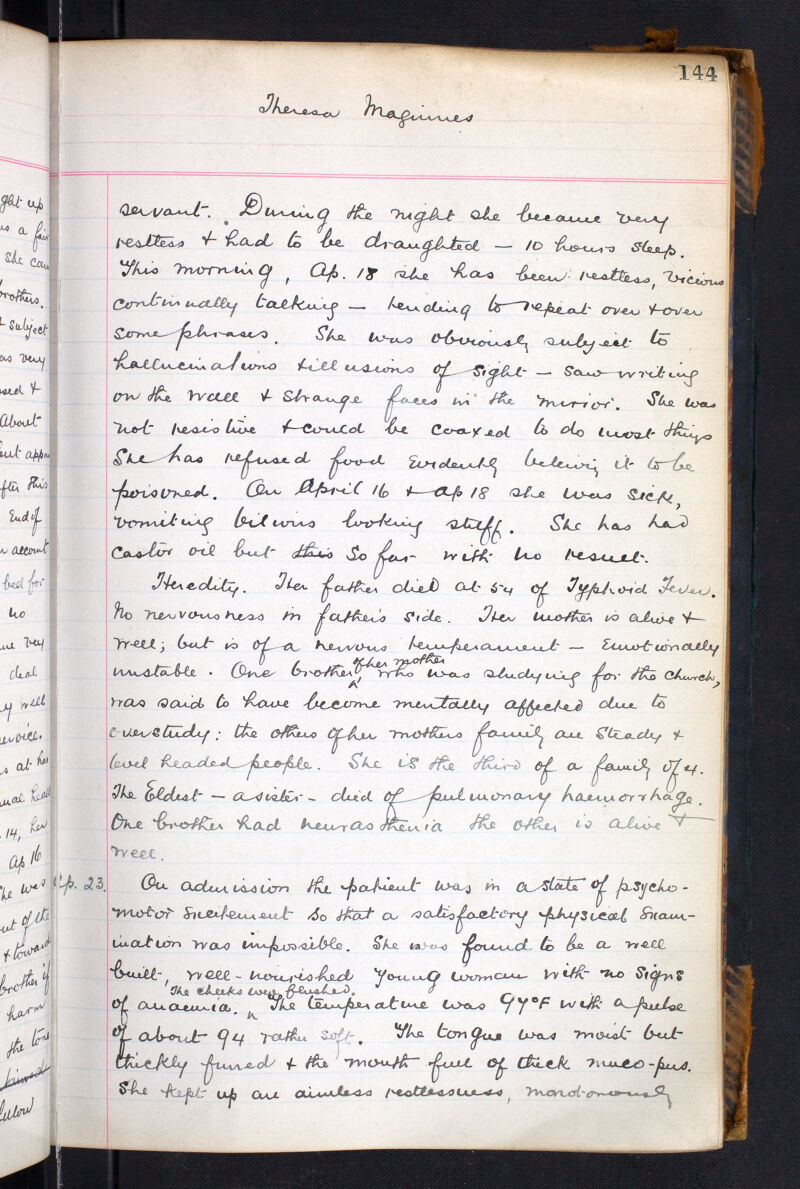 144
Theresa Maginnes
servant. During the night she became very
restless & had to be draughted — 10 hours sleep.
This morning, Ap. 18 she has been restless, vicious
continually talking — tending to repeat over & over
some phrases. She was obviously subject to
hallucinations & illusions of sight — saw writing
on the wall & strange faces in the mirror. She was
not resistive & could be coaxed to do most things
She has refused food evidently beleiving it to be
poisoned. On April 16 & ap 18 she was sick,
vomiting bilious looking stuff. She has had
castor oil but this so far with no result.
Heredity. Her father died at 54 of Typhoid Fever.
No nervousness in father's side. Her mother is alive &
well; but is of a nervous temperament — emotionally
unstable. One brother of her mother who was studying for the church,
was said to have become mentally affected due to
overstudy: the others of her mothers family are steady &
level headed people. She is the third of a family of 4.
The Eldest — a sister — died of pulmonary haemorrhage.
One brother had neurasthenia the other is alive &
well.
Ap. 23. On admission the patient was in a state of psycho-
motor excitement so that a satisfactory physical exam-
ination was impossible. She was found to be a well
built, well-nourished young woman with no signs
of anaemia. The cheeks were flushed. The temperature was 97°F with a pulse
of about 94 rather soft. The tongue was moist but
thickly furred & the mouth full of thick muco-pus.
She kept up an aimless restlessness, monotonously
ght up
as a fair
she can
brothers.
& subject
as very
&
About
but
after this
End of
account
bed for
no
very
deal
well
service.
at her
14, her
Ap 16
she was
out of the
& toward
brother if
harm
the tone